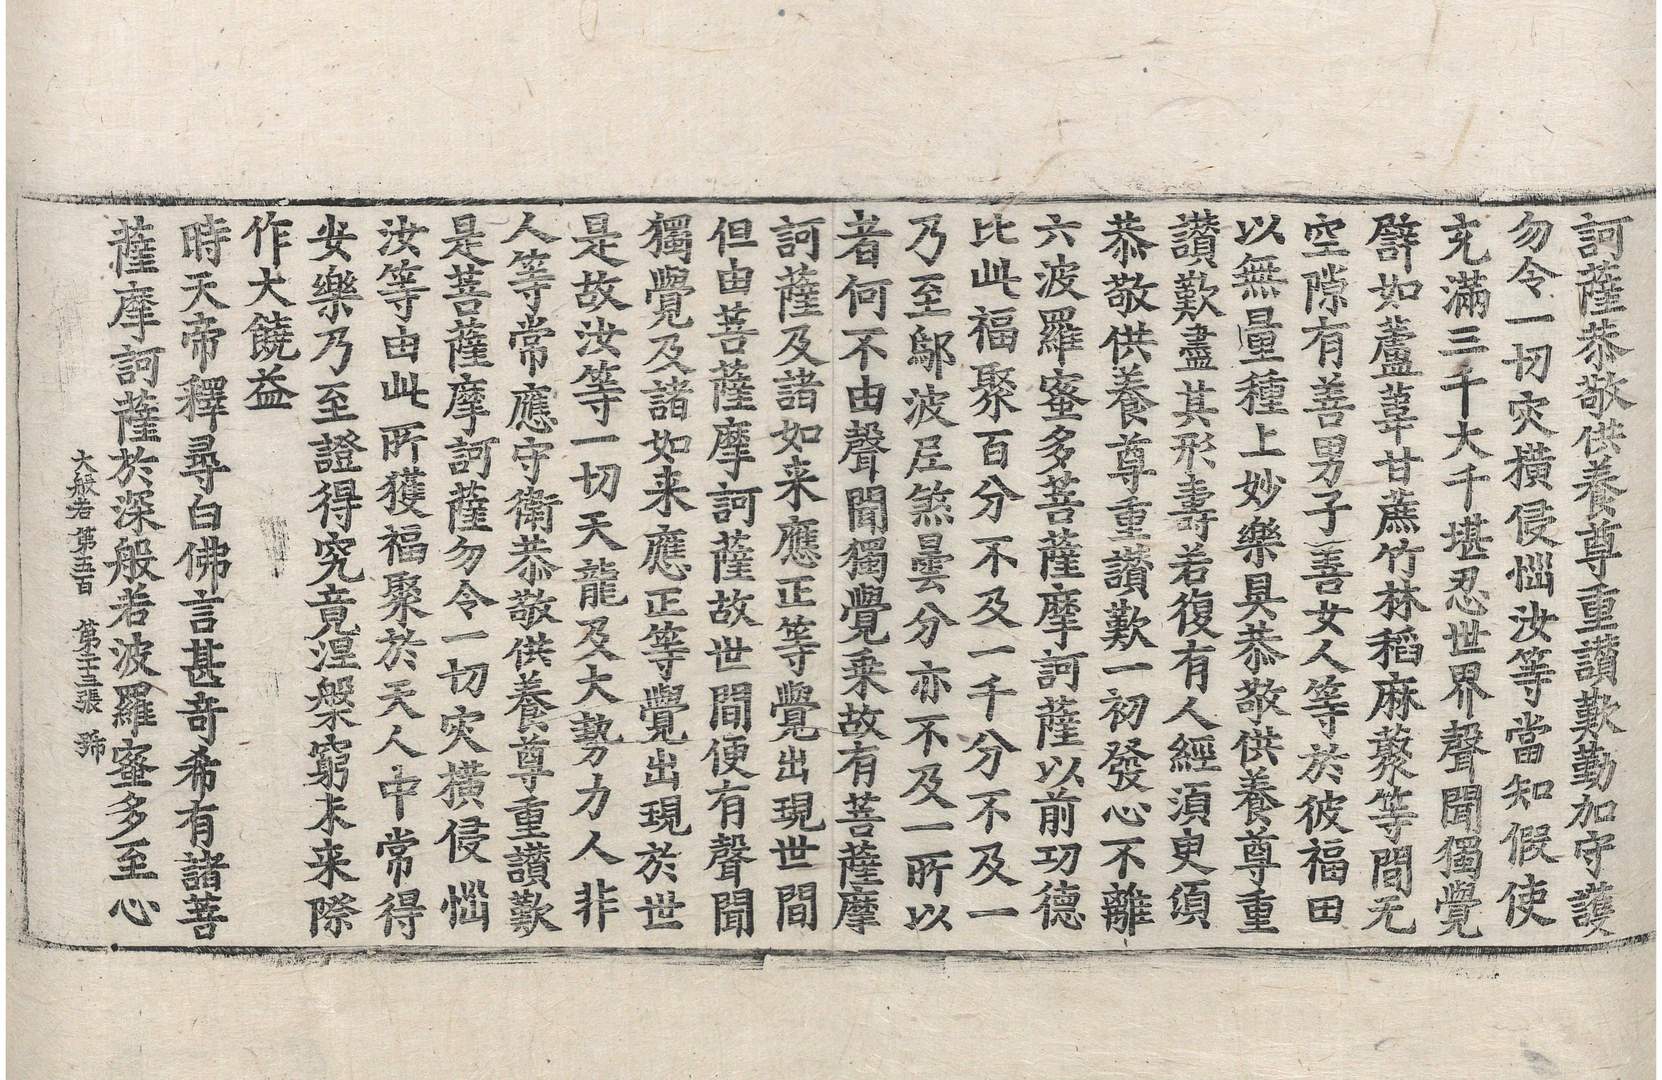 訶薩恭敬供養尊重讃歎勤加守護
勿令一切灾橫侵惱汝等當知假使
充滿三千大千堪忍世界聲聞獨覺
譬如蘆葦甘蔗竹林稻麻䕺等間无
空隙有善男子善女人等於彼福田
以無量種上妙樂具恭敬供養尊重
讃歎盡其形壽若復有人經須臾頃
恭敬供養尊重讃歎一初發心不離
六波羅蜜多菩薩摩訶薩以前功德
比此福聚百分不及一千分不及一
乃至鄔波尼煞曇分亦不及一所以
者何不由聲聞獨覺乗故有菩薩摩
訶薩及諸如来應正等覺出現世間
但由菩薩摩訶薩故世間便有聲聞
獨覺及諸如来應正等覺出現於世
是故汝等一切天龍及大勢力人非
人等常應守衛恭敬供養尊重讃歎
是菩薩摩訶薩勿令一切灾橫侵惱
汝等由此所獲福聚於天人中常得
安樂乃至證得究竟涅槃窮未来際
作大饒益
時天帝釋尋白佛言甚奇希有諸菩
薩摩訶薩於深般若波羅蜜多至心
大般若 第五百 第二十三張 㗊